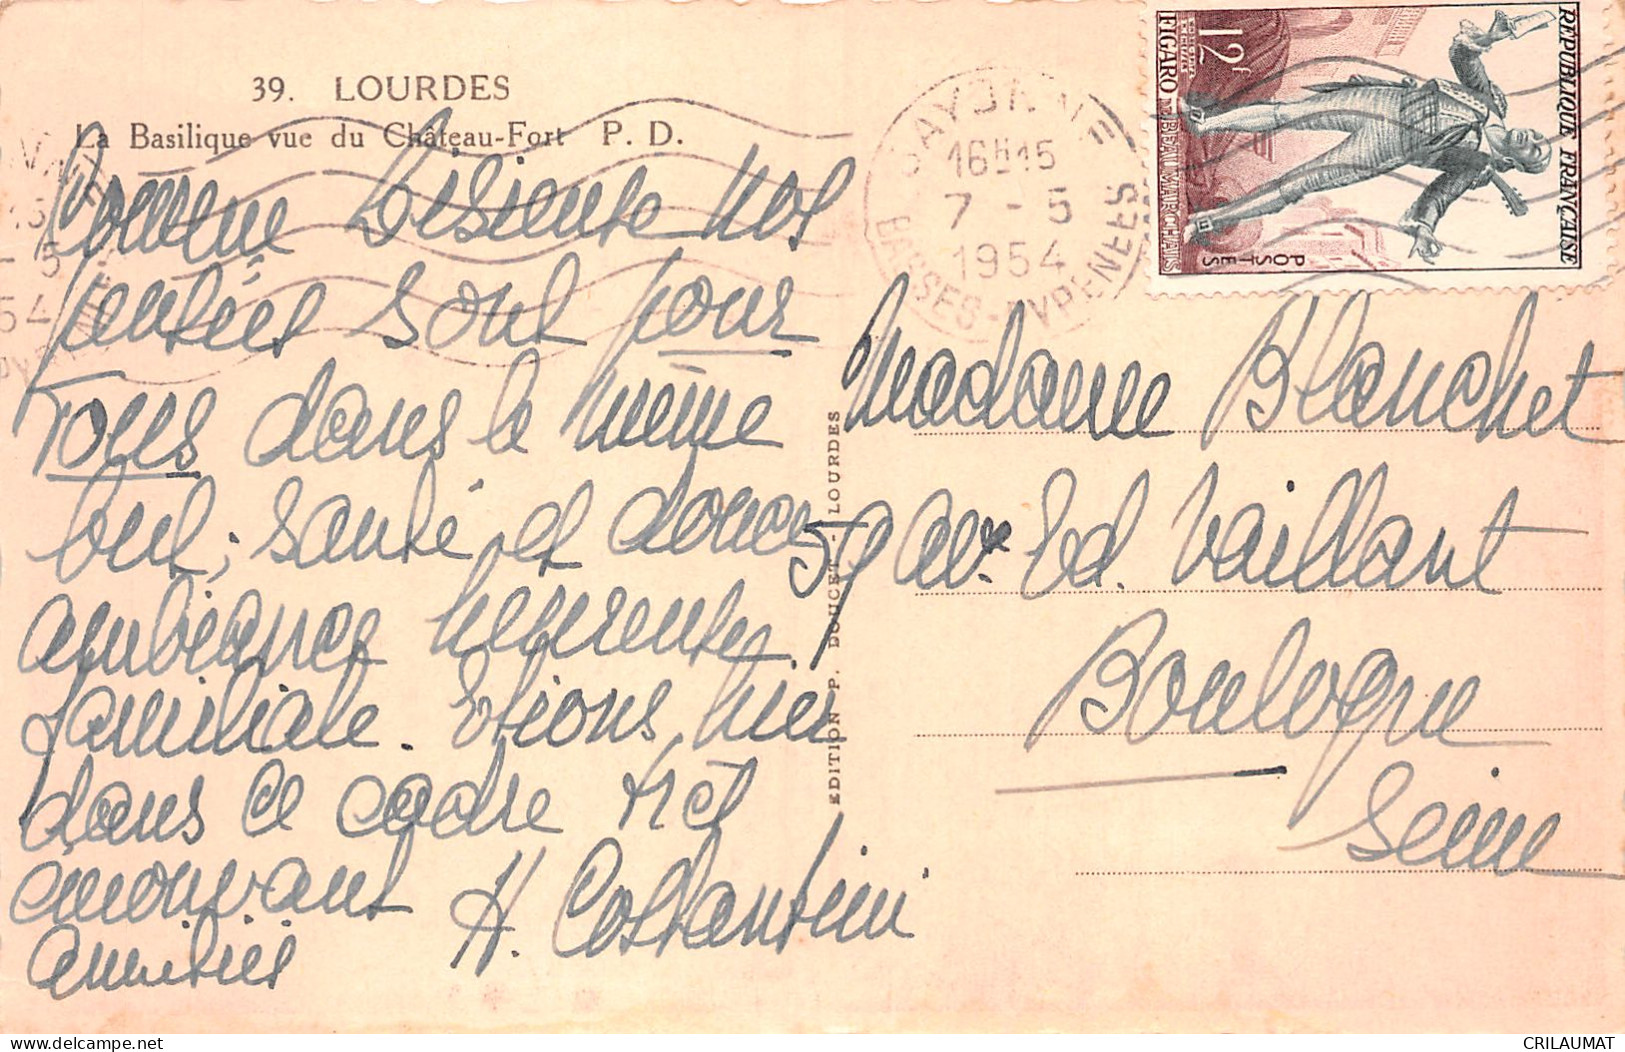 39. LOURDES
La Basilique vue du Château-Fort P. D.
nos
pensées sont pour
Tous dans le même
but, santé et douce
ambiance heureuse,
familiale. Etions hier
dans ce cadre très
émouvant
amitiés
H. Costantini
EDITION P. DOUCET - LOURDES
BAYONNE
16H15
7 - 5
1954
BASSES-PYRENEES
REPUBLIQUE FRANÇAISE
POSTES
12f
FIGARO BEAUMARCHAIS
Madame Blanchet
59 Av. Ed. Vaillant
Boulogne
Seine
CRILAUMAT